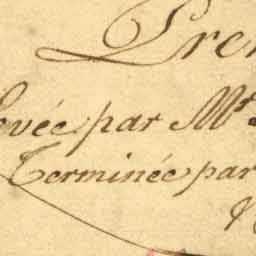 Pre
evée par Mr
Terminée par